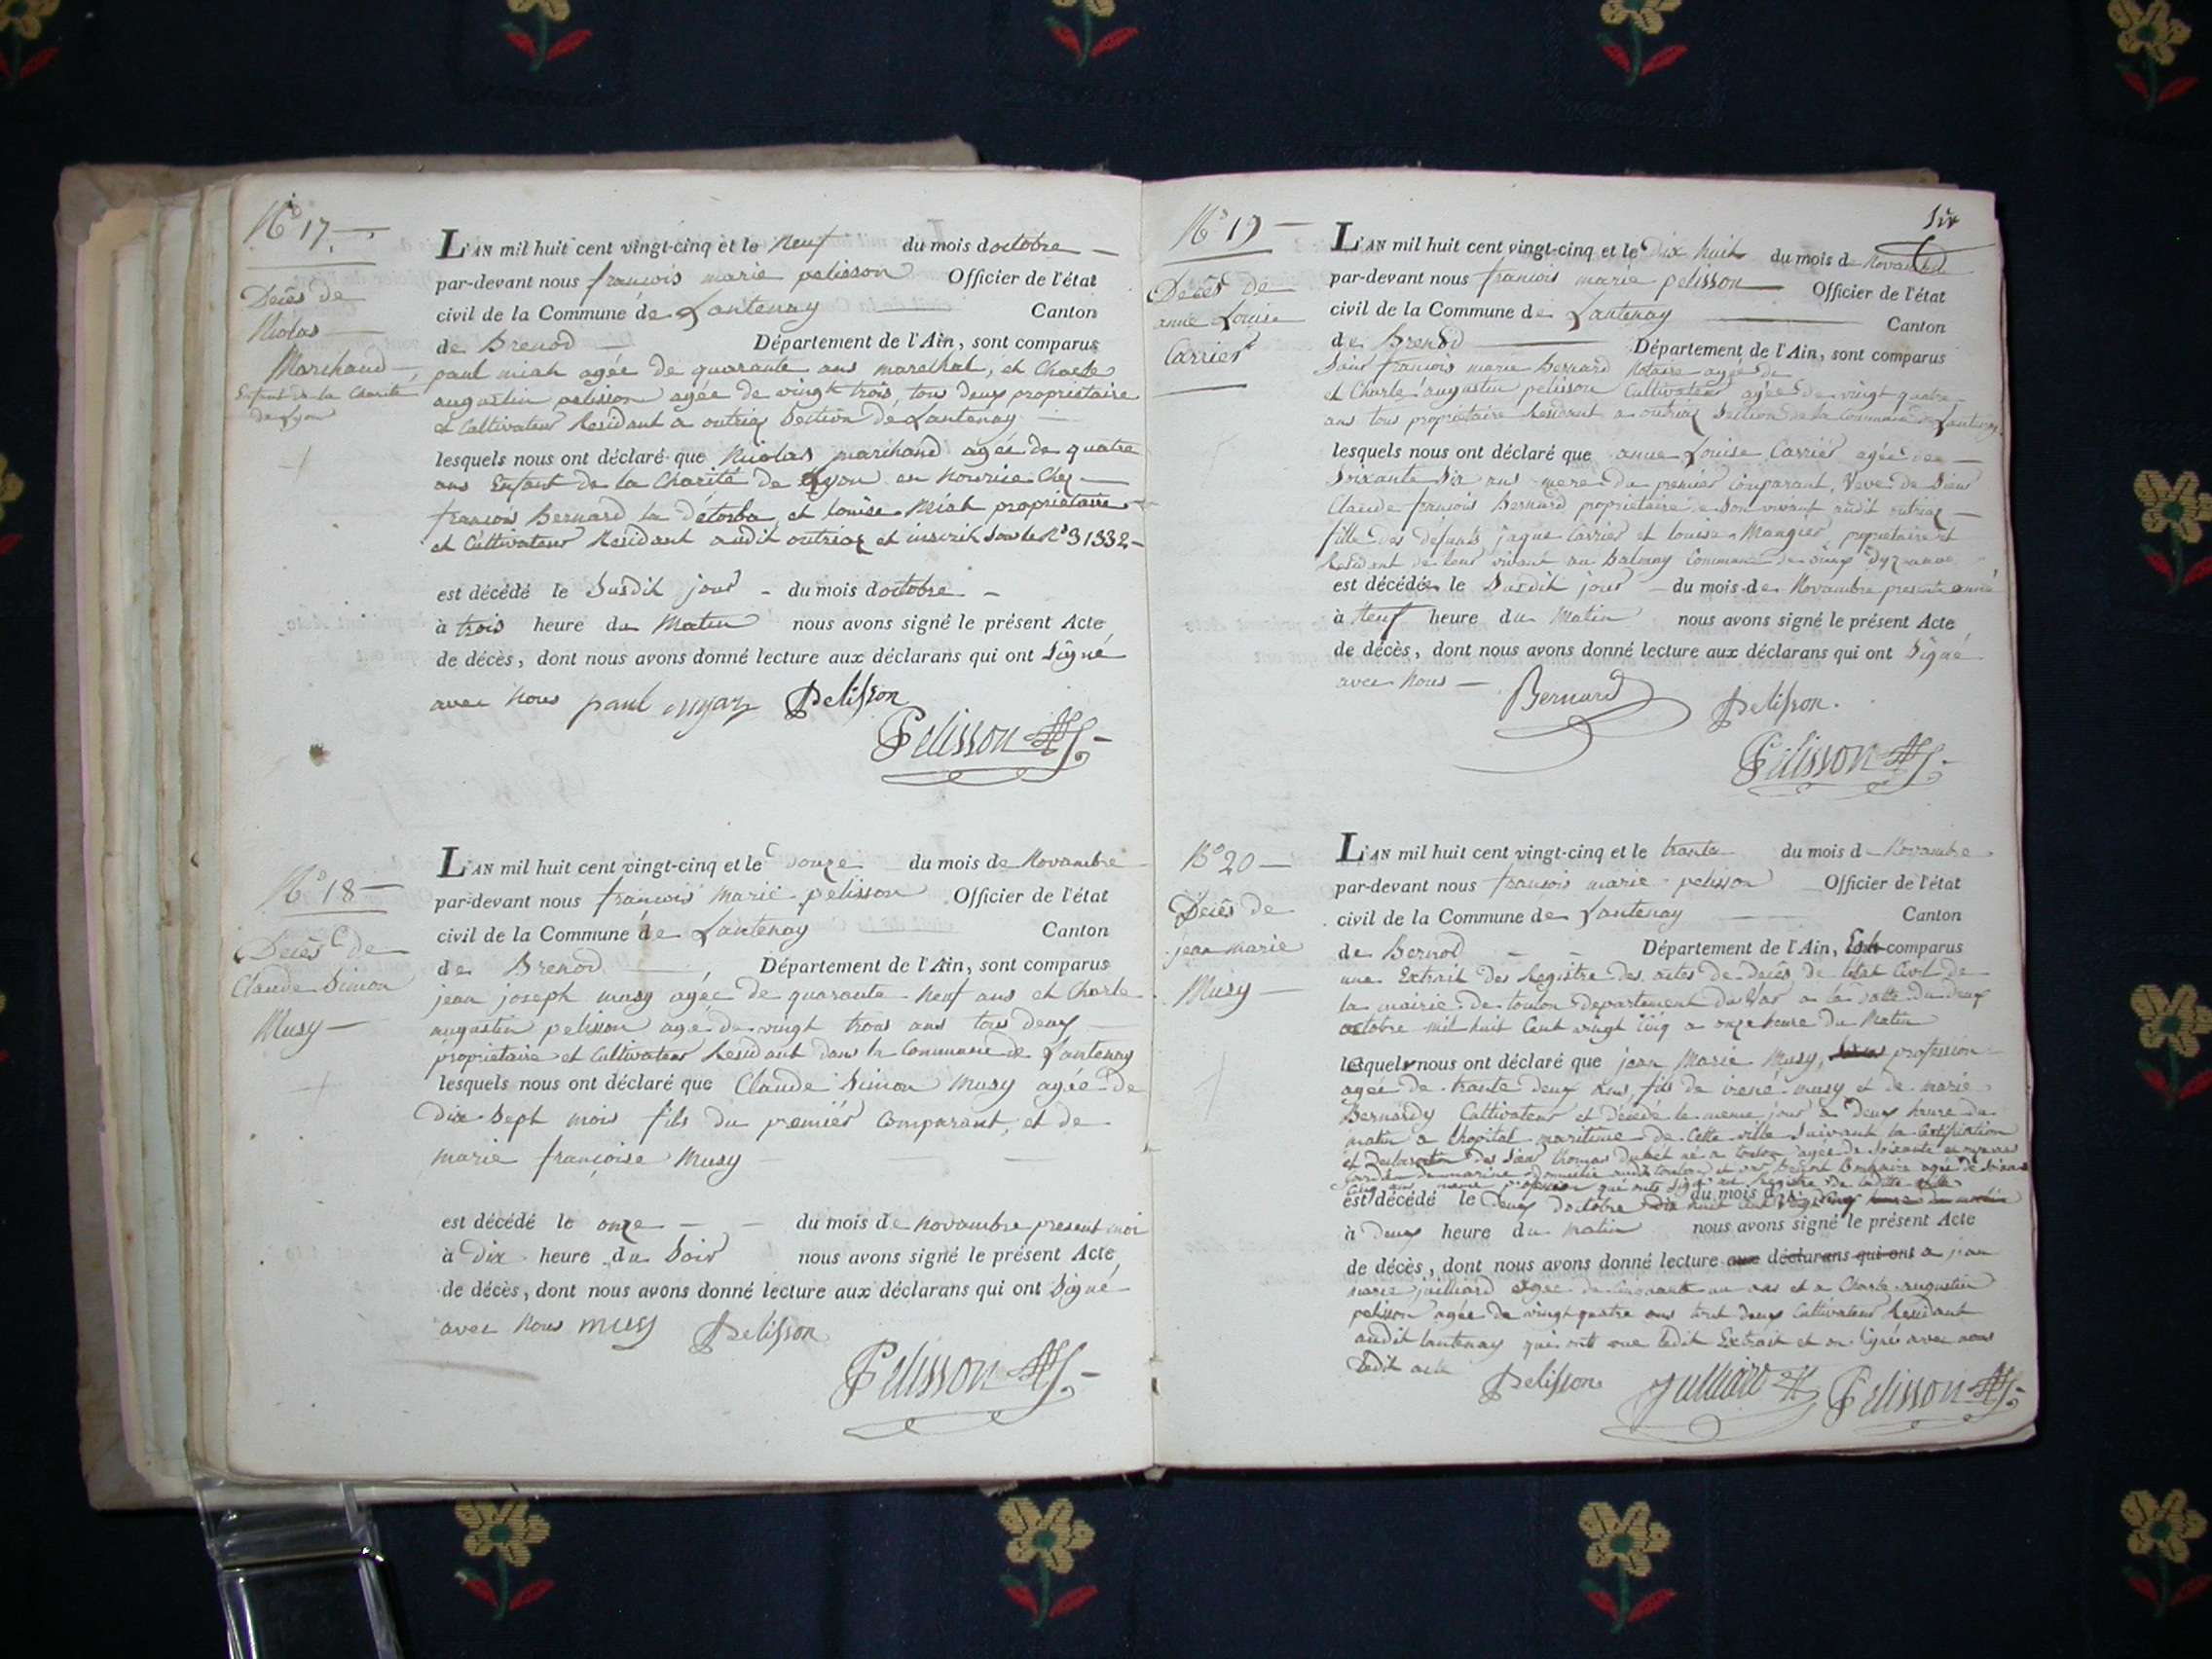 N° 17
Decês de
Nicolas
Marchand
Enfant de la Charité
de Lyon
L'AN mil huit cent vingt-cinq et le neuf du mois doctobre
par-devant nous francois marie pelisson Officier de l'état
civil de la Commune de Lantenay Canton
de Brenod Département de l'Ain, sont comparus
paul miah agée de quarante ans marechal, et Charle
augustin pelisson agée de vingt trois, tous deux propriétaire
et Cultivateur Residant a outriaz Section de Lantenay
lesquels nous ont déclaré que Nicolas marchand agée de quatre
ans Enfant de la Charité de Lyon en nourice Chez
francois Bernard la détorba et louise Miah propriétaire
et Cultivateur Residant audit outriaz et inscrit sous le N° 31332
est décédé le Susdit jour du mois doctobre
à trois heure du Matin nous avons signé le présent Acte
de décès, dont nous avons donné lecture aux déclarans qui ont Signé
avec nous paul Pelisson
Pelisson
N° 18
Decês de
Claude Simon
Musy
L'AN mil huit cent vingt-cinq et le douze du mois de Novambre
par-devant nous francois marie pelisson Officier de l'état
civil de la Commune de Lantenay Canton
de Brenod Département de l'Ain, sont comparus
jean joseph musy agée de quarante neuf ans et Charle
augustin pelisson age de vingt trois ans tous deux
propriétaire et Cultivateur Residant dans la Commune de Lantenay
lesquels nous ont déclaré que Claude Simon Musy agée de
Dix Sept mois fils du premiér Comparant, et de
marie françoise Musy
est décédé le onze du mois de novambre present moi
à Dix heure du Soir nous avons signé le présent Acte
de décès, dont nous avons donné lecture aux déclarans qui ont Signé
avec nous musy Pelisson
Pelisson
Six
N° 19
Decês de
anne Louise
Carrier
L'AN mil huit cent vingt-cinq et le Dix huit du mois de Novambre
par-devant nous francois marie pelisson Officier de l'état
civil de la Commune de Lantenay Canton
de Brenod Département de l'Ain, sont comparus
Sieur francois marie Bernard Notaire agée de
et Charle augustin pelisson Cultivateur agée de vingt quatre
ans tous propriétaire Residant a outriaz Section de la Commune de Lantenay
lesquels nous ont déclaré que anne Louise Carrier agée de
Soixante Six ans mere du premier Comparant, Veve de Sieur
Claude francois Bernard propriétaire a Son vivant audit outriaz
fille des defunts jaque Carrier et louise Mangier, propriétaire et
Residant de leur vivant au Balmay Commune de
est décédée le Susdit jour du mois de Novambre presente anné
à Neuf heure du Matin nous avons signé le présent Acte
de décès, dont nous avons donné lecture aux déclarans qui ont Signé
avec nous Bernard Pelisson.
Pelisson
N° 20
Decês de
jean marie
Musy
L'AN mil huit cent vingt-cinq et le trante du mois d Novambre
par-devant nous francois marie pelisson Officier de l'état
civil de la Commune de Lantenay Canton
de Bernod Département de l'Ain, Est comparus
une Extrait des Registre des actes de decês de l'état Civil de
la mairie de toulon Departement du Var a la datte du deux
octobre mil huit Cent vingt Cinq a onze heure du Matin
lesquels nous ont déclaré que jean Marie Musy, Sans profession
agée de trante deux ans, fils de irené musy et de marie
Bernardy Cultivateur et décédé le meme jour a Deux heure du
matin a lhopital maritime de Cette ville Suivant la Certification
et Declaration des Sieur thomas né a toulon agée de Soixante
est décédé le Deux doctobre Dix huit cent vingt cinq du mois d
à Deux heure du matin nous avons signé le présent Acte
de décès, dont nous avons donné lecture aux déclarans qui ont a jean
marie juilliard agée de Cinquante un ans et a Charle augustin
pelisson agée de vingt quatre ans tout deux Cultivateur Residant
audit lantenay qui ont vue ledit Extrait et on signé avec nous
ledit acte Pelisson Julliard Pelisson